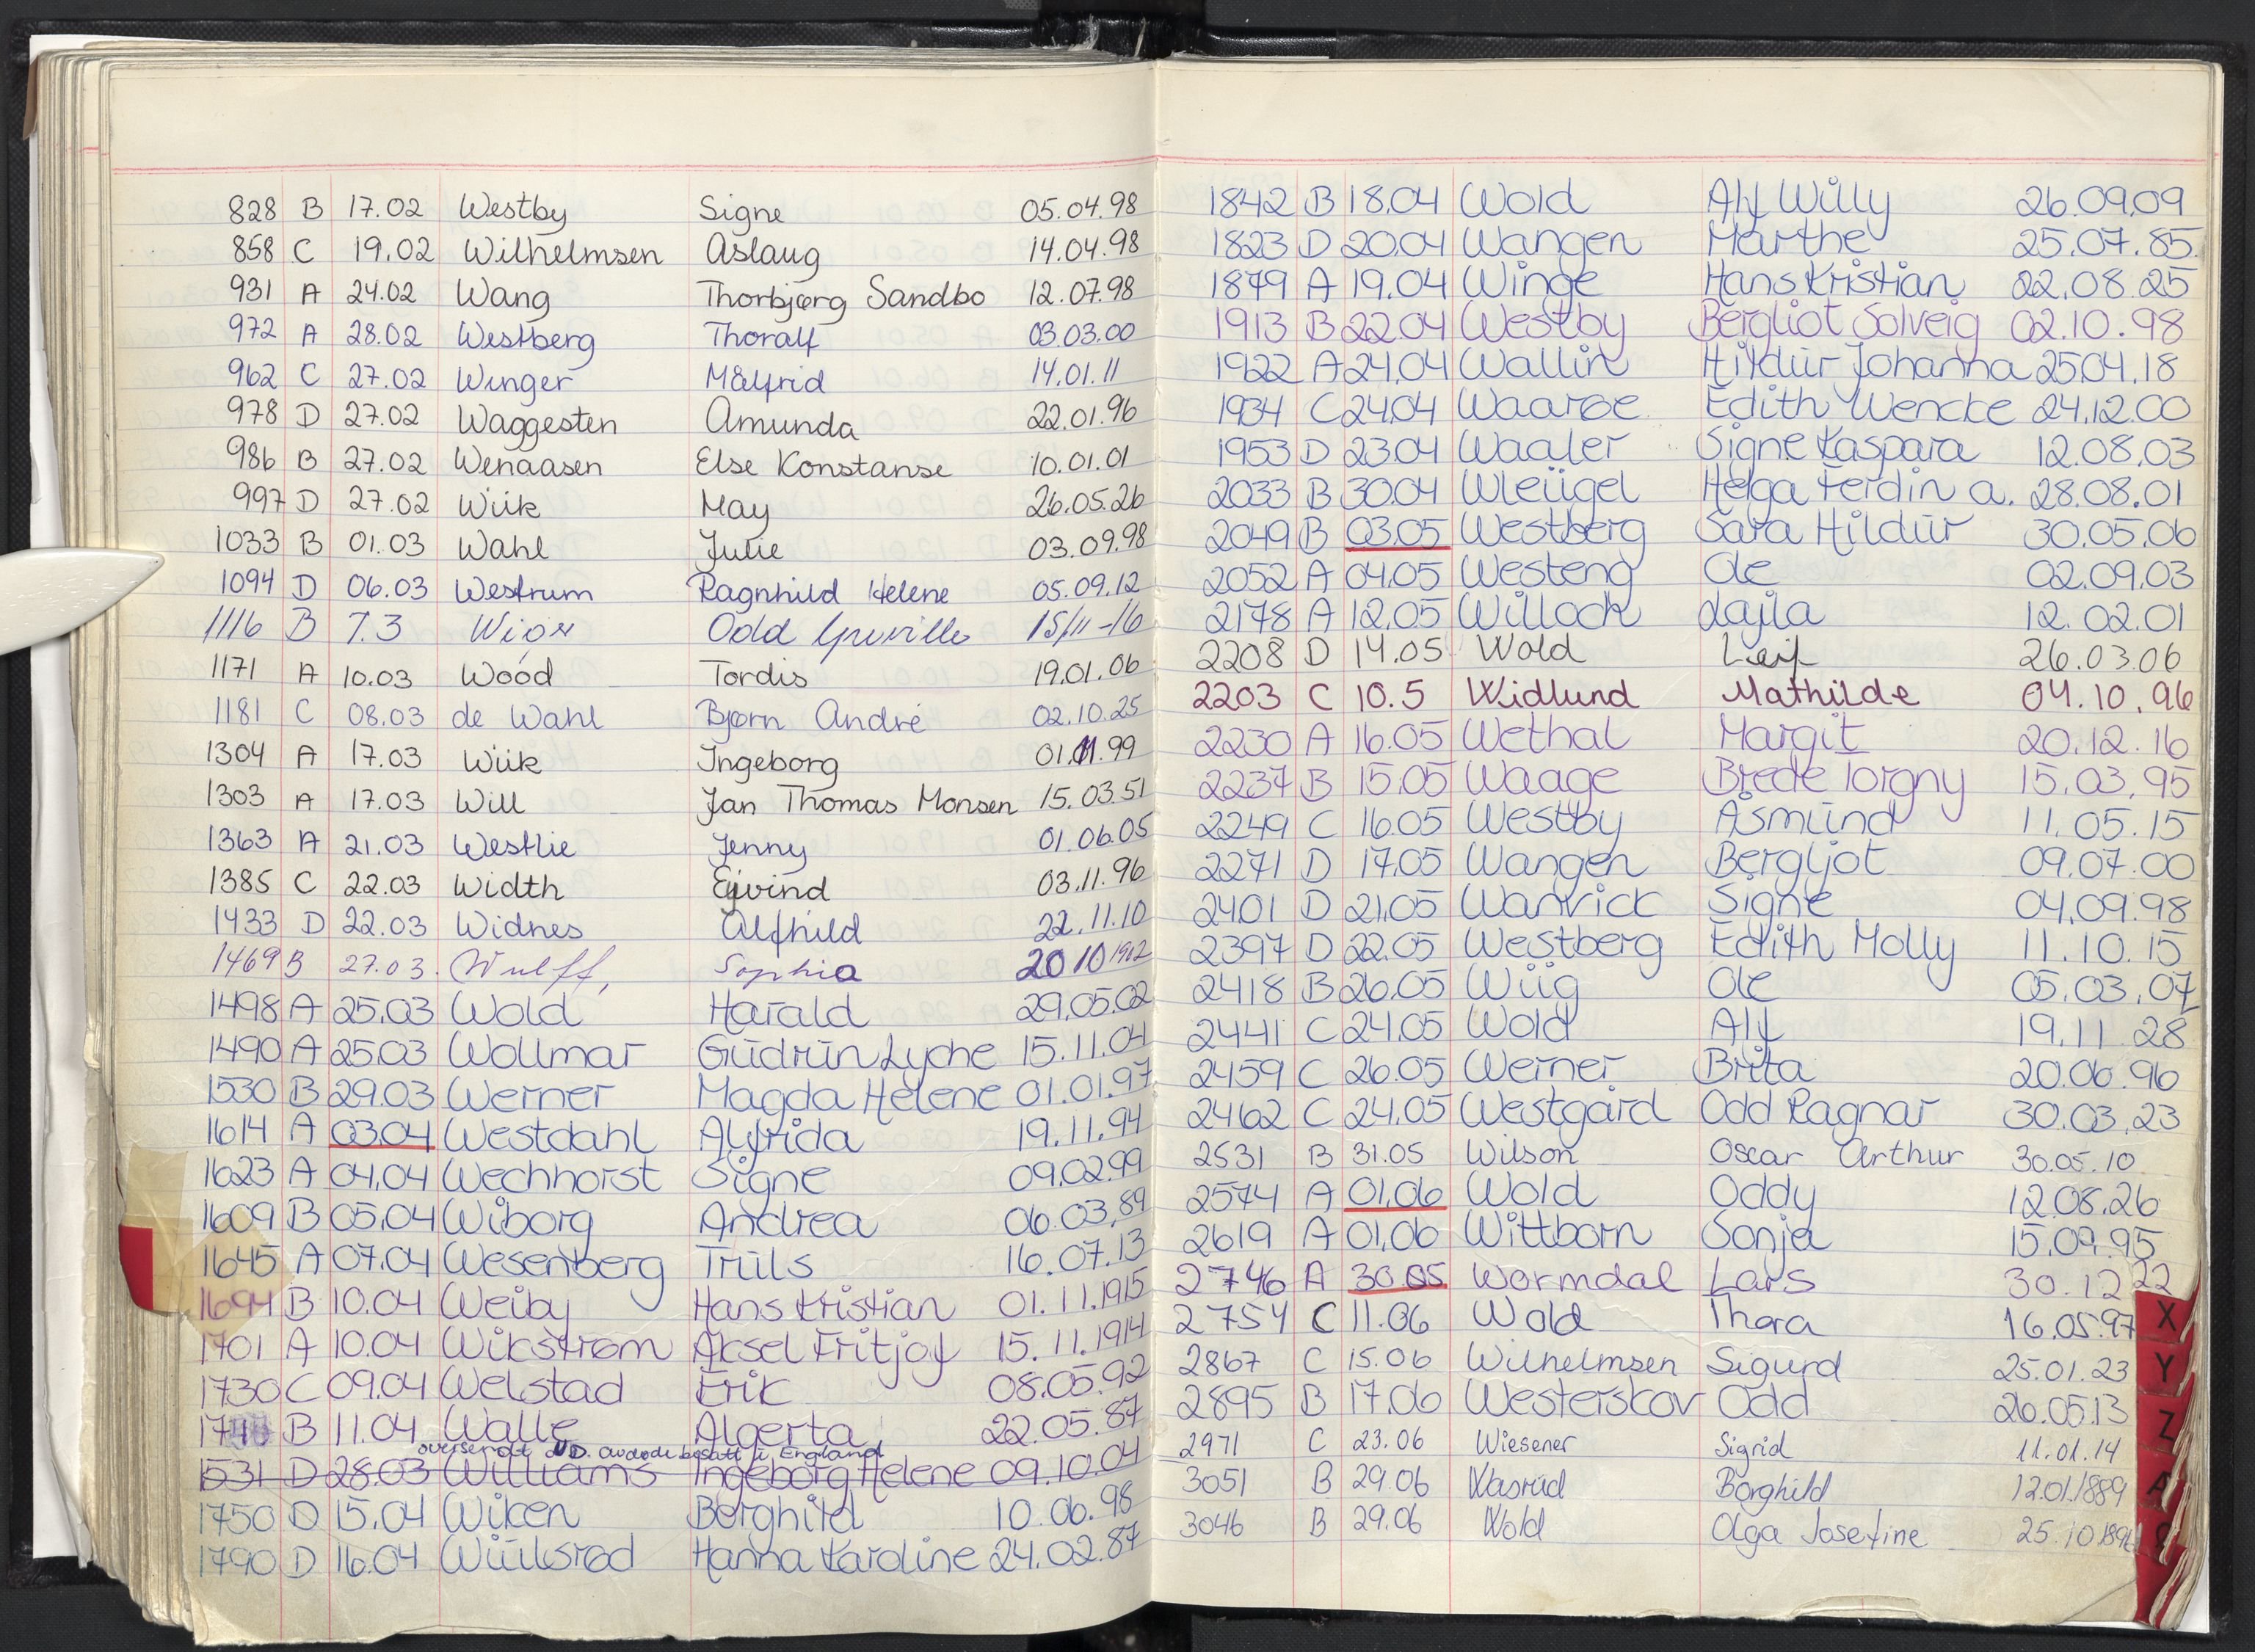 828 B 17.02 Westby Signe 05.04.98
858 C 19.02 Wilhelmsen Aslaug 14.04.98
931 A 24.02 Wang Thorbjørg Sandbo 12.07.98
972 A 28.02 Westberg Thoralf 03.03.00
962 C 27.02 Winger Målfrid 14.01.11
978 D 27.02 Waggesten Amunda 22.01.96
986 B 27.02 Wenaasen Else Konstanse 10.01.01
997 D 27.02 Wiik May 26.05.26
1033 B 01.03 Wahl Julie 03.09.98
1094 D 06.03 Westrum Ragnhild Helene 05.09.12
1116 B 7.3 Odd 15/11-16
1171 A 10.03 Wood Tordis 19.01.06
1181 C 08.03 de Wahl Bjørn André 02.10.25
1304 A 17.03 Wiik Ingeborg 01.11.99
1303 A 17.03 Will Jan Thomas Monsen 15.03.51
1363 A 21.03 Westlie Jenny 01.06.05
1385 C 22.03 Width Eivind 03.11.96
1433 D 22.03 Widnes Alfhild 22.11.10
1469 B 27.03. Wulff, Sophia 20 10 1902
1498 A 25.03 Wold Harald 29.05.02
1490 A 25.03 Wollmar Gudrun Lyche 15.11.04
1530 B 29.03 Werner Magda Helene 01.01.97
1614 A 03.04 Westdahl Alfrida 19.11.94
1623 A 04.04 Wechhorst Signe 09.02.99
1609 B 05.04 Wiborg Andrea 06.03.89
1645 A 07.04 Wesenberg Truls 16.07.13
1694 B 10.04 Weiby Hans Kristian 01.11.1915
1701 A 10.04 Wikstrøm Aksel Fritjof 15.11.1914
1730 C 09.04 Welstad Erik 08.05.92
B 11.04 Walle Algerta 22.05.87
oversendt UD. avdøde bosatt i England
1531 D 28.03 Williams Ingeborg Helene 09.10.04
1750 D 15.04 Wiken Borghild 10.06.98
1790 D 16.04 Wiulsrød Hanna Karoline 24.02.87
1842 B 18.04 Wold Alf Willy 26.09.09
1823 D 20.04 Wangen Marthe 25.07.85
1879 A 19.04 Winge Hans Kristian 22.08.25
1913 B 22.04 Westby Bergliot Solveig 02.10.98
1922 A 24.04 Wallin Hildur Johanna 25.04.18
1934 C 24.04 Waarøe Edith Wencke 24.12.00
1953 D 23.04 Waaler Signe Kaspara 12.08.03
2033 B 30.04 Wleügel Helga Ferdin a. 28.08.01
2049 B 03.05 Westberg Sara Hildur 30.05.06
2052 A 04.05 Westeng Ole 02.09.03
2178 A 12.05 Willoch Lajla 12.02.01
2208 D 14.05 Wold Leif 26.03.06
2203 C 10.5 Widlund Mathilde 04.10.96
2230 A 16.05 Wethal Margit 20.12.16
2237 B 15.05 Waage Brede Torgny 15.03.95
2249 C 16.05 Westby Åsmund 11.05.15
2271 D 17.05 Wangen Bergljot 09.07.00
2401 D 21.05 Warvick Signe 04.09.98
2397 D 22.05 Westberg Edith Molly 11.10.15
2418 B 26.05 Wiig Ole 05.03.07
2441 C 24.05 Wold Alf 19.11.28
2459 C 26.05 Werner Brita 20.06.96
2462 C 24.05 Westgård Odd Ragnar 30.03.23
2531 B 31.05 Wilson Oscar Arthur 30.05.10
2574 A 01.06 Wold Oddy 12.08.26
2619 A 01.06 Wittborn Sonja 15.09.95
2746 A 30.05 Wormdal Lars 30.12.22
2754 C 11.06 Wold Thora 16.05.97
2867 C 15.06 Wilhelmsen Sigurd 25.01.23
2895 B 17.06 Westerskov Odd 26.05.13
2971 C 23.06 Wiesener Sigrid 11.01.14
3051 B 29.06 Wasrud Borghild 12.01.1889
3046 B 29.06 Wold Olga Josefine
X
Y
Z